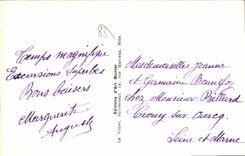 Temps magnifique
Excursions superbes
Bons baisers
Marguerite
Auguste
Mesdemoiselles Jeanne
et Germaine
chez Monsieur Billiard
Crouy sur Ourcq
Seine et Marne